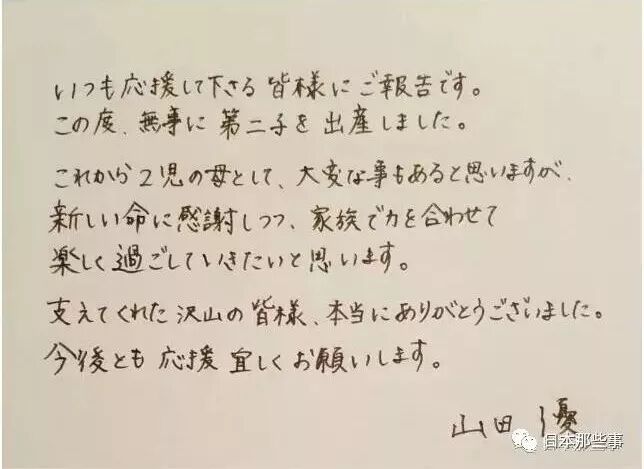 いつも応援して下さる皆様にご報告です。
この度、無事に第二子を出産しました。
これから2児の母として、大変な事もあると思いますが、
新しい命に感謝しつつ、家族で力を合わせて
楽しく過ごしていきたいと思います。
支えてくれた沢山の皆様、本当にありがとうございました。
今後とも応援宜しくお願いします。
山田優
日本那些事